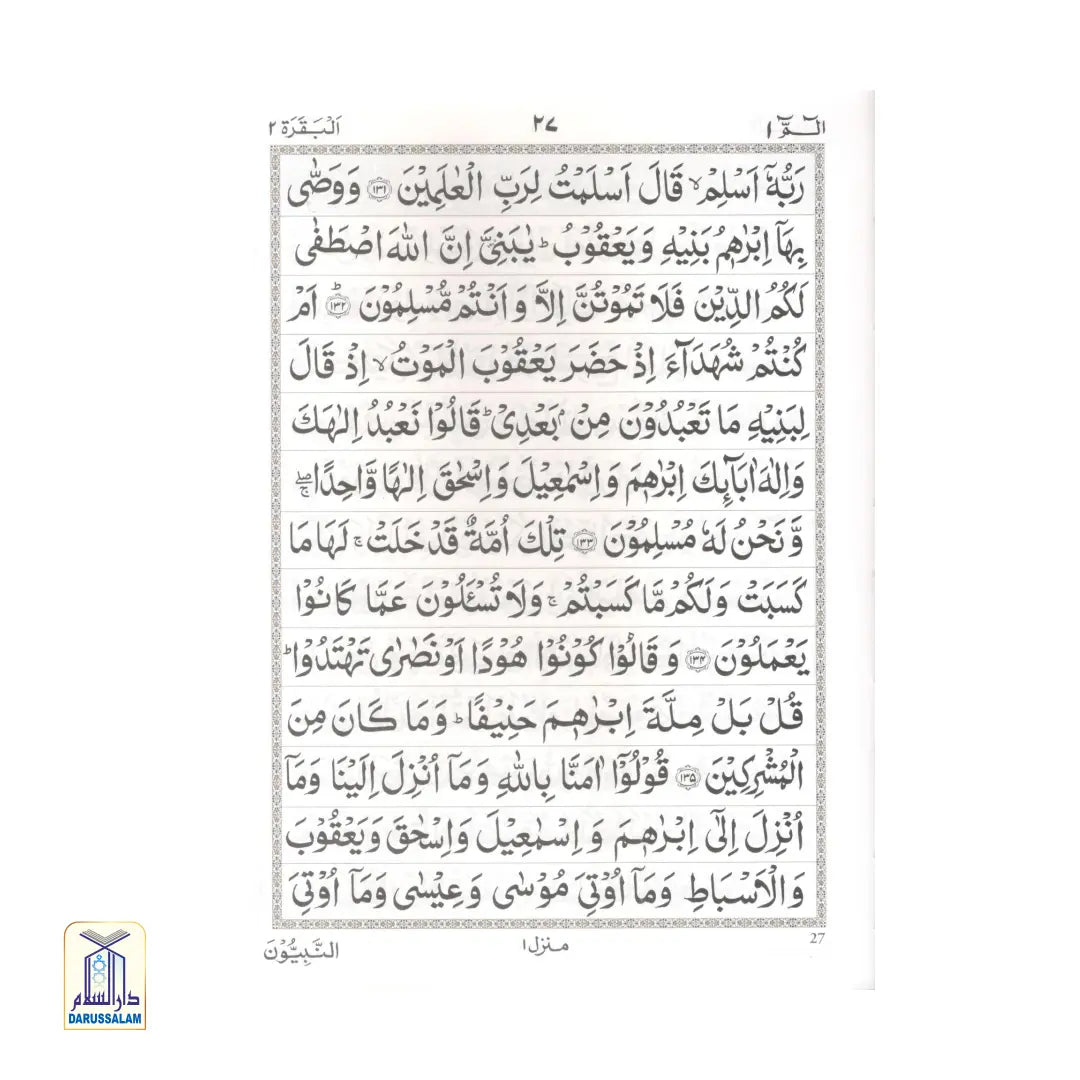 الٓـمّٓ ۱ ۲۷ اَلْبَقَرَة ۲
رَبُّهٗۤ اَسْلِمْ ۙ قَالَ اَسْلَمْتُ لِرَبِّ الْعٰلَمِیْنَ ﴿۱۳۱﴾ وَوَصّٰی
بِهَاۤ اِبْرٰهٖمُ بَنِیْهِ وَیَعْقُوْبُ ؕ یٰبَنِیَّ اِنَّ اللّٰهَ اصْطَفٰی
لَكُمُ الدِّیْنَ فَلَا تَمُوْتُنَّ اِلَّا وَاَنْتُمْ مُّسْلِمُوْنَ ﴿۱۳۲﴾ؕ اَمْ
كُنْتُمْ شُهَدَآءَ اِذْ حَضَرَ یَعْقُوْبَ الْمَوْتُ ۙ اِذْ قَالَ
لِبَنِیْهِ مَا تَعْبُدُوْنَ مِنْۢ بَعْدِیْ ؕ قَالُوْا نَعْبُدُ اِلٰهَكَ
وَاِلٰهَ اٰبَآىِٕكَ اِبْرٰهٖمَ وَاِسْمٰعِیْلَ وَاِسْحٰقَ اِلٰهًا وَّاحِدًا ۖۚ
وَّنَحْنُ لَهٗ مُسْلِمُوْنَ ﴿۱۳۳﴾ تِلْكَ اُمَّةٌ قَدْ خَلَتْ ۚ لَهَا مَا
كَسَبَتْ وَلَكُمْ مَّا كَسَبْتُمْ ۚ وَلَا تُسْـَٔلُوْنَ عَمَّا كَانُوْا
یَعْمَلُوْنَ ﴿۱۳۴﴾ وَقَالُوْا كُوْنُوْا هُوْدًا اَوْ نَصٰرٰی تَهْتَدُوْا ؕ
قُلْ بَلْ مِلَّةَ اِبْرٰهٖمَ حَنِیْفًا ؕ وَمَا كَانَ مِنَ
الْمُشْرِكِیْنَ ﴿۱۳۵﴾ قُوْلُوْۤا اٰمَنَّا بِاللّٰهِ وَمَاۤ اُنْزِلَ اِلَیْنَا وَمَاۤ
اُنْزِلَ اِلٰۤی اِبْرٰهٖمَ وَاِسْمٰعِیْلَ وَاِسْحٰقَ وَیَعْقُوْبَ
وَالْاَسْبَاطِ وَمَاۤ اُوْتِیَ مُوْسٰی وَعِیْسٰی وَمَاۤ اُوْتِیَ
27
منزل ۱ النَّبِیُّوْنَ
دارالسلام
DARUSSALAM